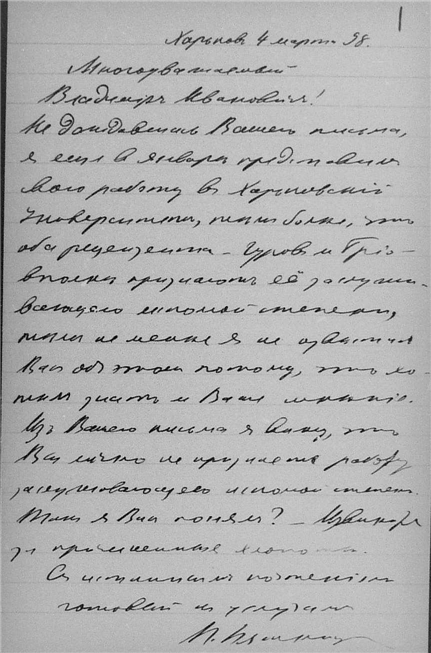 1
Харьковъ 4 марта 98.
Многоуважаемый
Владимiръ Ивановичъ!
Не дождавшись Вашего письма,
я еще в январѣ представилъ
свою работу въ Харьковскiй
Университетъ, тѣмъ более, что
оба рецензента – Гуровъ и
признаютъ её заслужи-
вающею искомой степени,
тѣмъ не менѣе я не извѣстилъ
Васъ объ этомъ потому, что хо-
тѣлъ знать и Ваше мнѣнiе.
Изъ Вашего письма я вижу, что
Вы лично не признаете работу
заслуживающею искомой степени.
Такъ я Васъ понялъ? – Извините
за причиненные хлопоты.
Съ истиннымъ почтенiемъ
готовый къ услугамъ